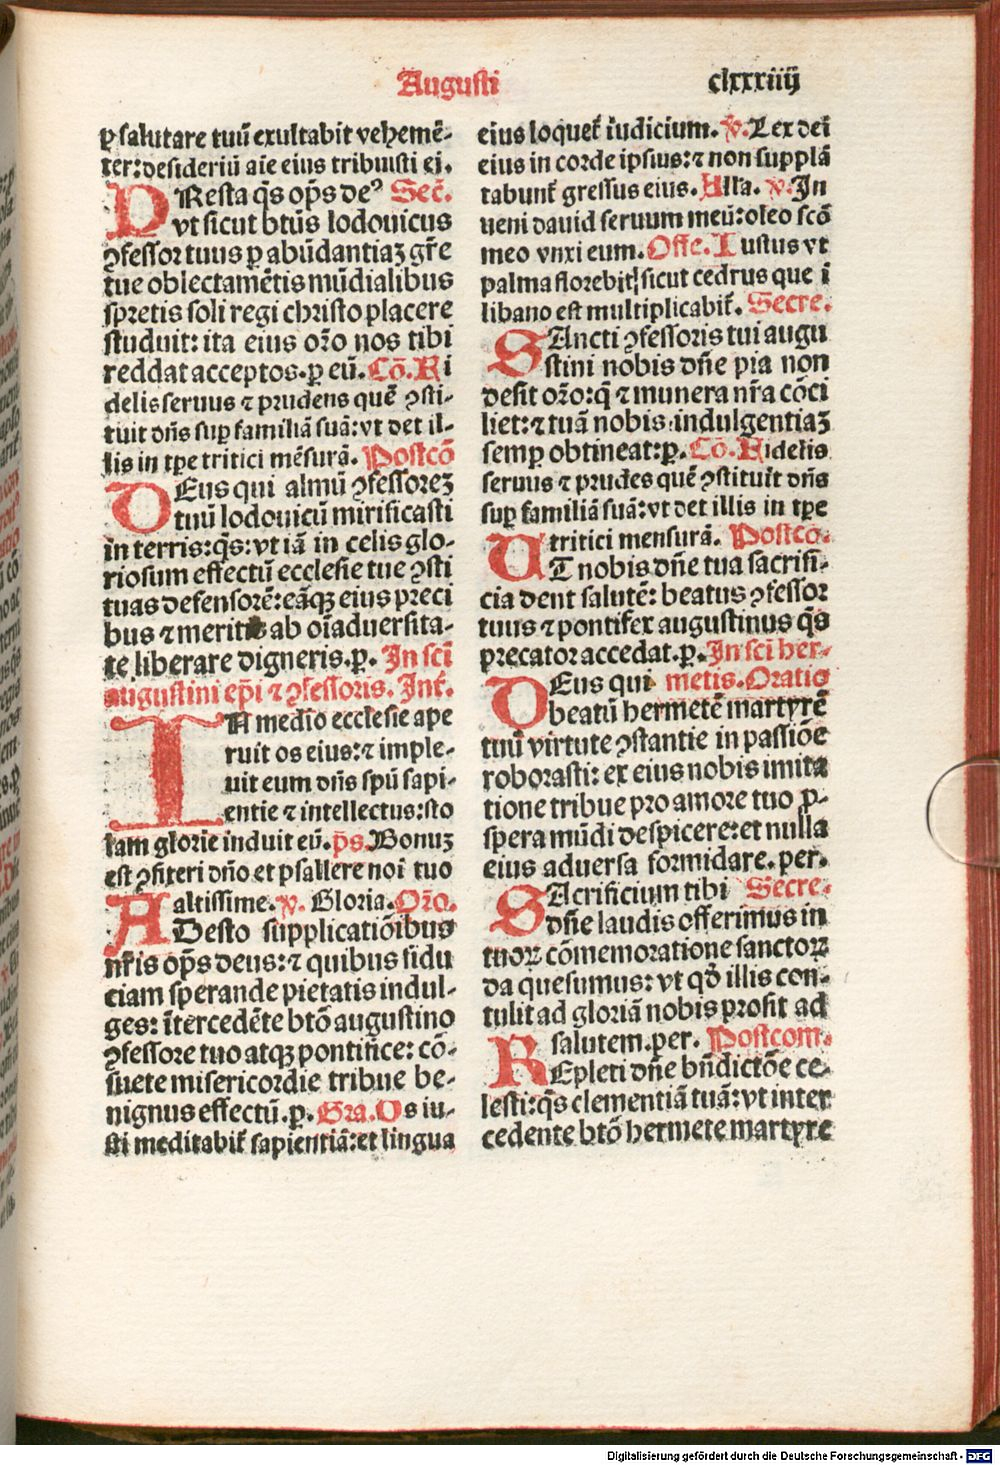 Augusti
clxxxiiij
ꝑ salutare tuū exultabit vehemē-
ter: desideriū aīe eius tribuisti ei.
PResta q̄s op̄s deꝰ Sec̄.
vt sicut btūs lodouicus
ꝯfessor tuus ꝑ abūdantiaꝫ gr̄e
tue oblectamētis mūdialibus
spretis soli regi christo placere
studuit: ita eius or̄o nos tibi
reddat acceptos. ꝑ eū. Cō. Fi
delis seruus ⁊ prudens quē ꝯsti-
tuit dn̄s suꝑ familiā suā: vt det il-
lis in tꝑe tritici mēsurā. Postcō
DEus qui almū ꝯfessoreꝫ
tuū lodouicū mirificasti
in terris: q̄s: vt iā in celis glo-
riosum effectū ecclesie tue ꝯsti
tuas defensorē: eāqꝫ eius preci
bus ⁊ meritis ab oī aduersita-
te liberare digneris. ꝑ. In sc̄i
augustini ep̄i ⁊ ꝯfessoris. Int̄.
IN medio ecclesie ape
ruit os eius: ⁊ imple-
uit eum dn̄s spū sapi-
entie ⁊ intellectus: sto
lam glorie induit eū. p̄s. Bonuꝫ
est ꝯfiteri dn̄o et psallere noī tuo
altissime. v̄. Gloria. Or̄o.
ADesto supplicatiōibus
nr̄is op̄s deus: ⁊ quibus fidu
ciam sperande pietatis indul-
ges: ītercedēte btō augustino
ꝯfessore tuo atqꝫ pontifice: cō-
suete misericordie tribue be-
nignus effectū. ꝑ. Gra. Os iu-
sti meditabit̄ sapientiā: et lingua
eius loquet̄ iudicium. v̄. Lex dei
eius in corde ipsius: ⁊ non supplā
tabunt̄ gressus eius. All̄a. v̄. In
ueni dauid seruum meū: oleo scō
meo vnxi eum. Offe. Iustus vt
palma florebit: sicut cedrus que ī
libano est multiplicabit̄. Secre.
SAncti ꝯfessoris tui augu
stini nobis dn̄e pia non
desit or̄o: q̄ ⁊ munera nr̄a cōci
liet: ⁊ tuā nobis indulgentiaꝫ
semꝑ obtineat: ꝑ. Cō. Fidelis
seruus ⁊ prudēs quē ꝯstituit dn̄s
suꝑ familiā suā: vt det illis in tꝑe
tritici mensurā. Postco.
UT nobis dn̄e tua sacrifi-
cia dent salutē: beatus ꝯfessor
tuus ⁊ pontifex augustinus q̄s
precator accedat. ꝑ. In sc̄i her-
DEus qui metis. Oratio
beatū hermetē martyrē
tuū virtute ꝯstantie in passiōe
roborasti: ex eius nobis imita
tione tribue pro amore tuo ꝓ-
spera mūdi despicere: et nulla
eius aduersa formidare. per.
SAcrificium tibi Secre.
dn̄e laudis offerimus in
tuoꝝ cōmemoratione sanctoꝝ
da quesumus: vt qđ illis con-
tulit ad gloriā nobis prosit ad
salutem. per. Postcom.
REpleti dn̄e bn̄dictōe ce-
lesti: q̄s clementiā tuā: vt inter
cedente btō hermete martyre
Digitalisierung gefördert durch die Deutsche Forschungsgemeinschaft - DFG